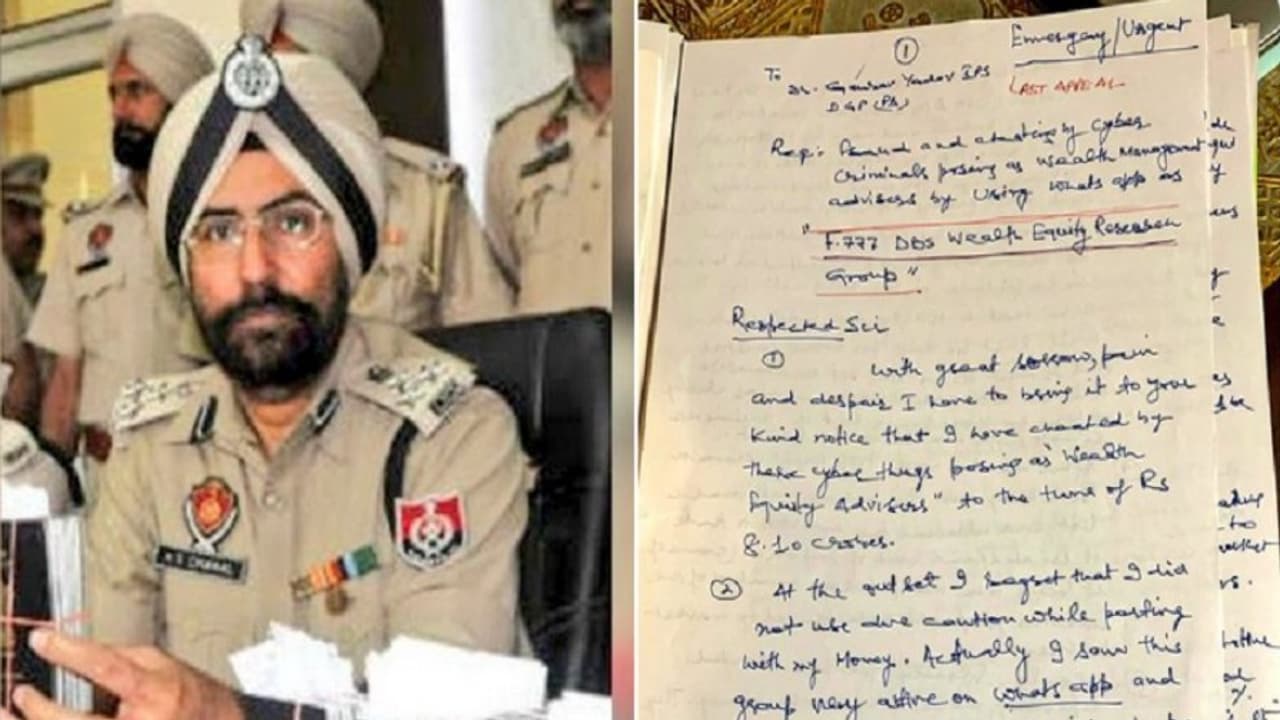 A S CHAHAL
①
Emergency/Urgent
To
Dr. Gaurav Yadav IPS
DGP (PB)
LAST APPEAL
and cheating by cyber
criminals posing as wealth Management
advisers by using whats app as
"F.777 DBS Wealth Equity Research
Group"
Respected Sir
①
with great sorrow, pain
and despair I have to bring it to your
kind notice that I have cheated by
these cyber thugs posing as "Wealth
Equity Advisers" to the tune of Rs
8.10 crores.
②
At the outset I regret that I did
not use due caution while parting
with my Money. Actually I saw this
group very active on whats app and